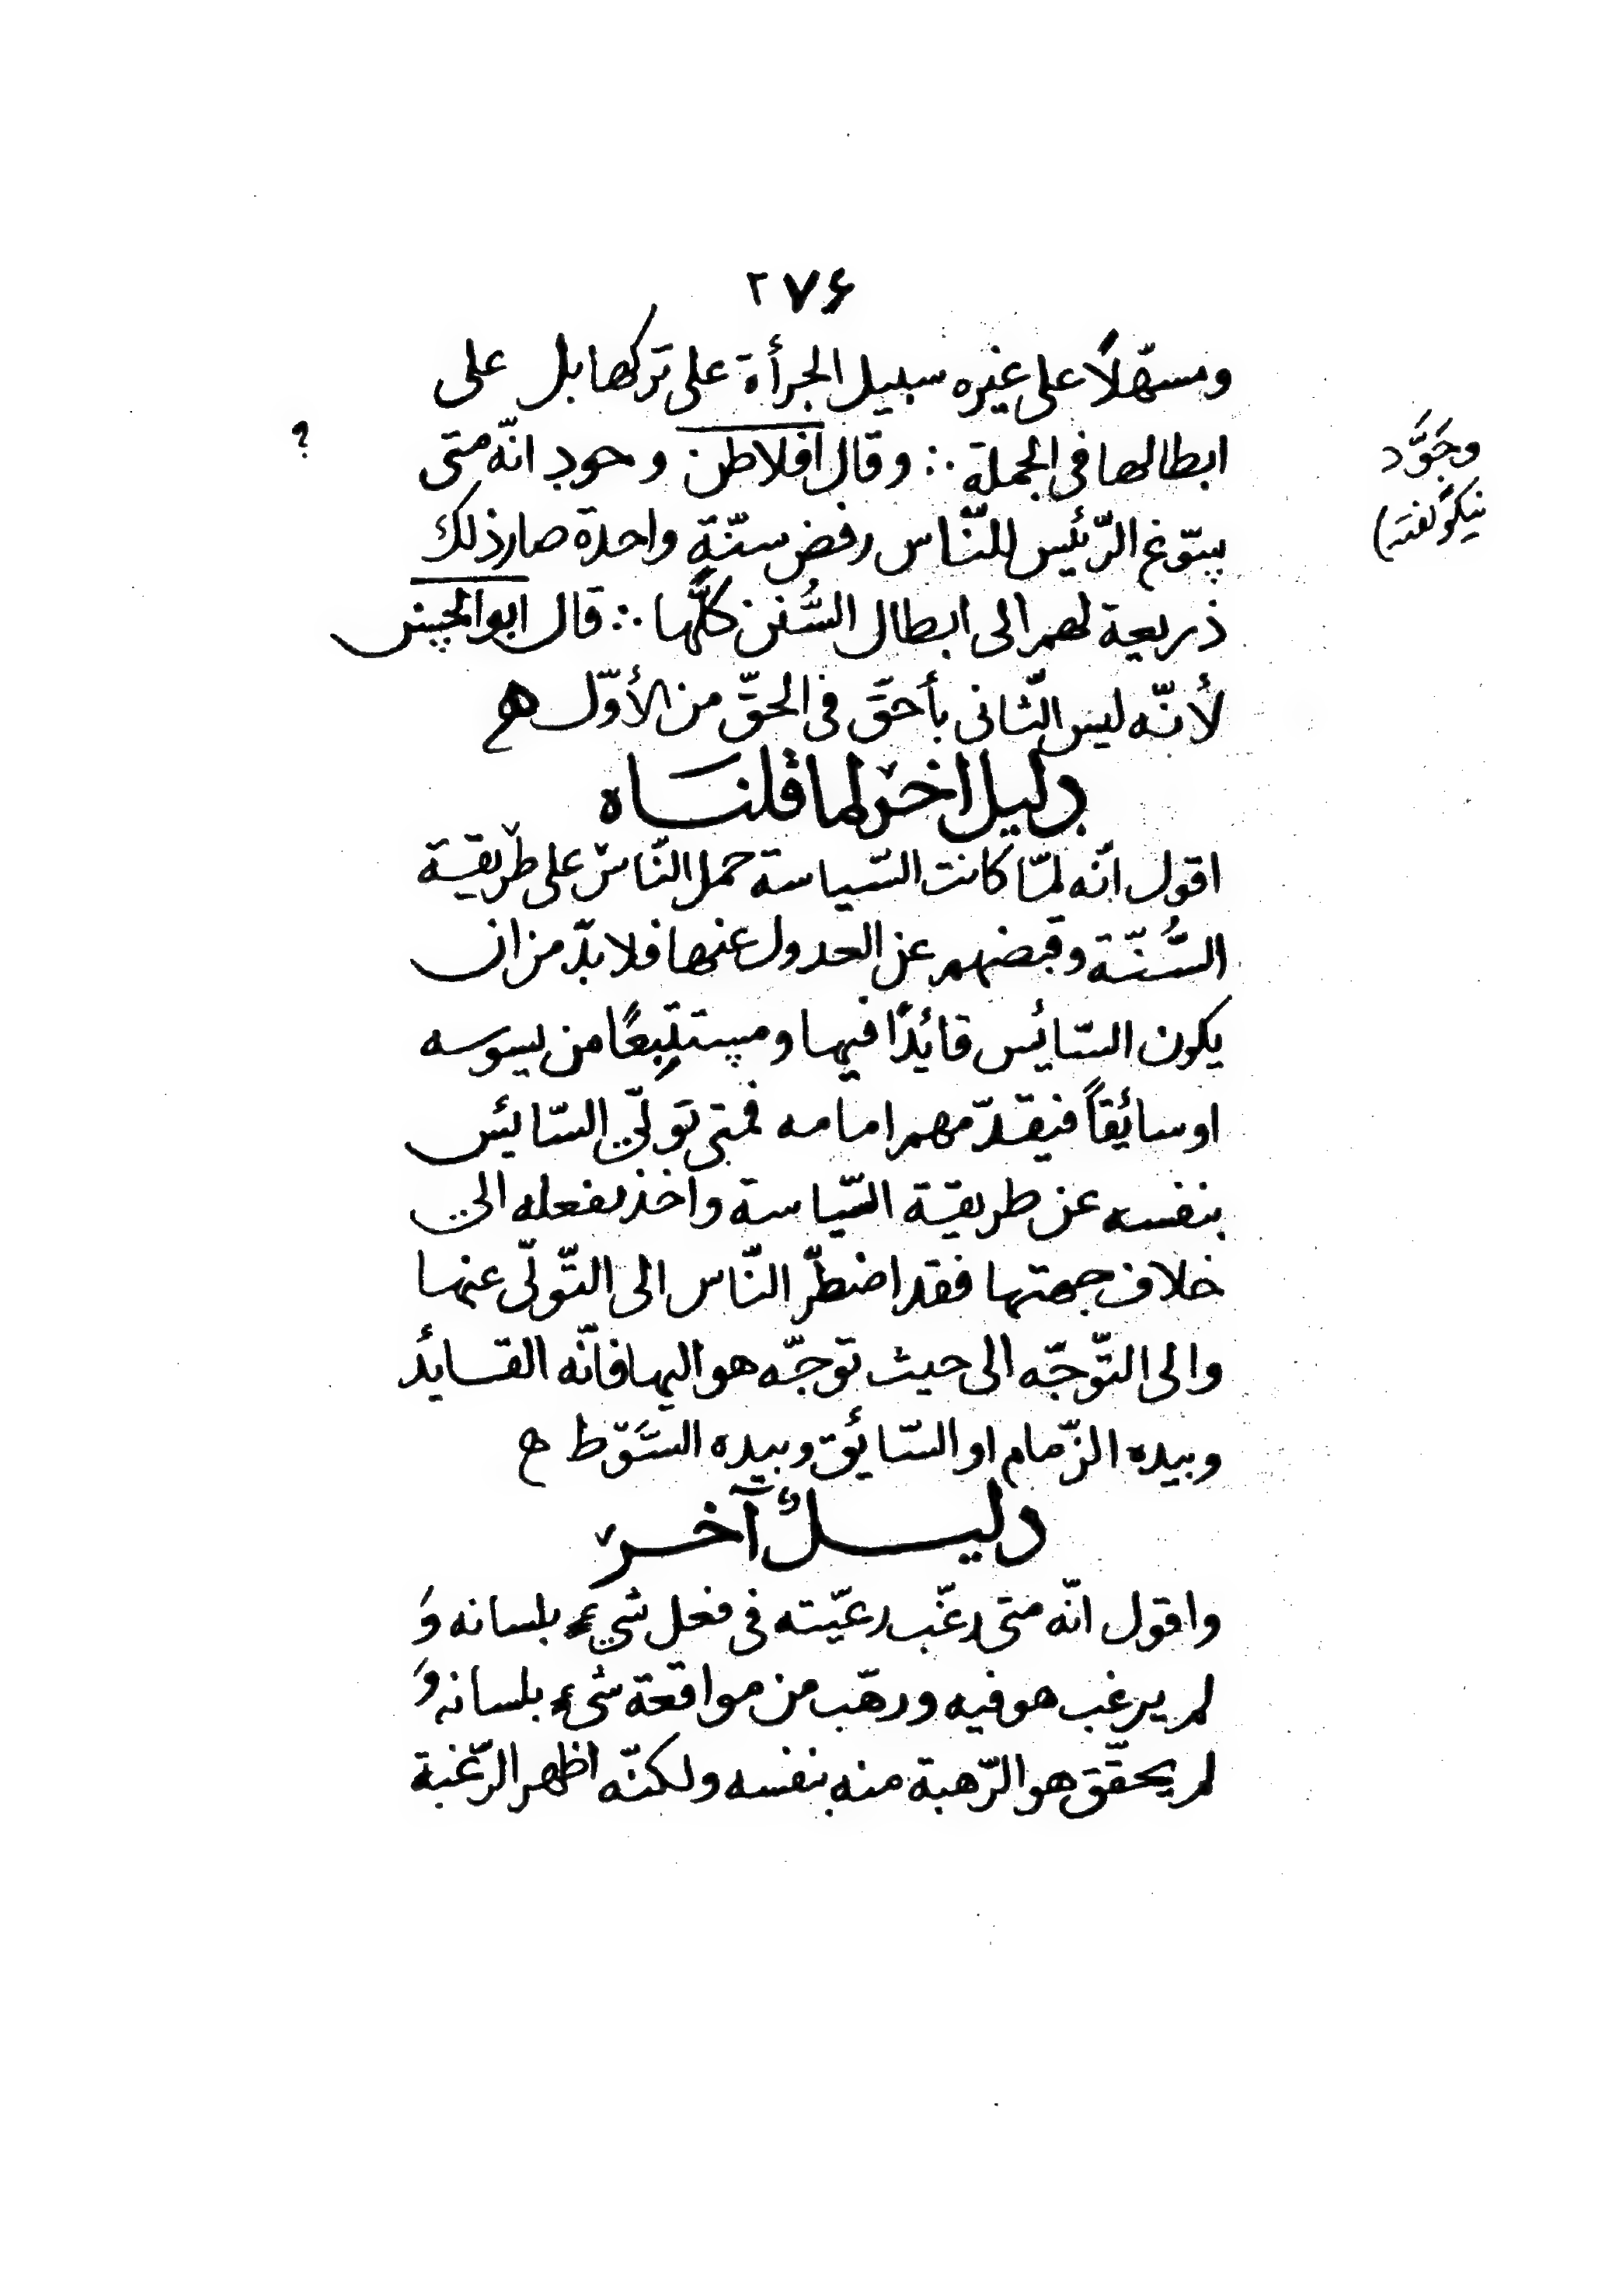 ۲۷۶
ومسهّلاً على غيره سبيل الجرأة على تركها بل على
ابطالها فى الجملة ∴ وقال افلاطن وحود انّه متى
؟
وجَوَّد
نیکو گفته)
يسّوغ الرّئيس للنّاس رفض سنّةٍ واحدة صار ذلك
ذريعة لهم الى ابطال السُّنن كلّها ∴ قال ابو الحسن
لأنّه ليس الثّانى بأحقّ فى الحقّ من الأوّل ه
دليل اخر لما قلناه
اقول انّه لمّا كانت السّياسة حمل النّاس على طريقة
السُّنّة وقبضهم عن العدول عنها فلا بدّ من ان
يكون السّائس قائدًا فيها ومستتبِعًا من يسوسه
او سائقاً فيقدّمهم امامه فمتى تولّى السّائس
بنفسه عن طريقة السّياسة واخذ بفعله الى
خلاف جهتها فقد اضطرّ النّاس الى التّولّى عنها
والى التّوجّه الى حيث توجّه هو اليها فانّه القسايدُ
وبيده الزّمام او السّائق وبيده السَّوط ه
دليلٌ آخر
واقول انّه متى رغّب رعيّته فى فعل شىءٍ بلسانه وَ
لم يرغب هو فيه ورهّب من مواقعة شىءٍ بلسانه وَ
لم يحقّق هو الرّهبة منه بنفسه ولكنّه اظهر الرّغبة